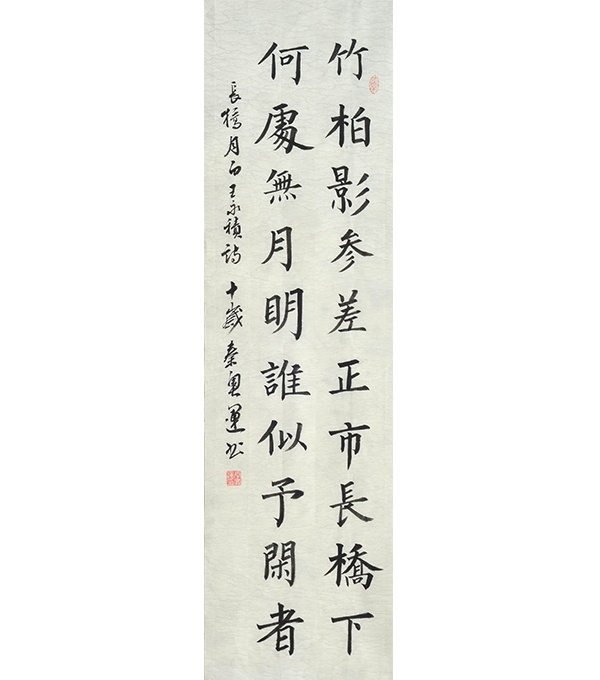 竹柏影参差正市長橋下
何處無月明誰似予閑者
長橋月白王永積詩 十歲秦奥運书